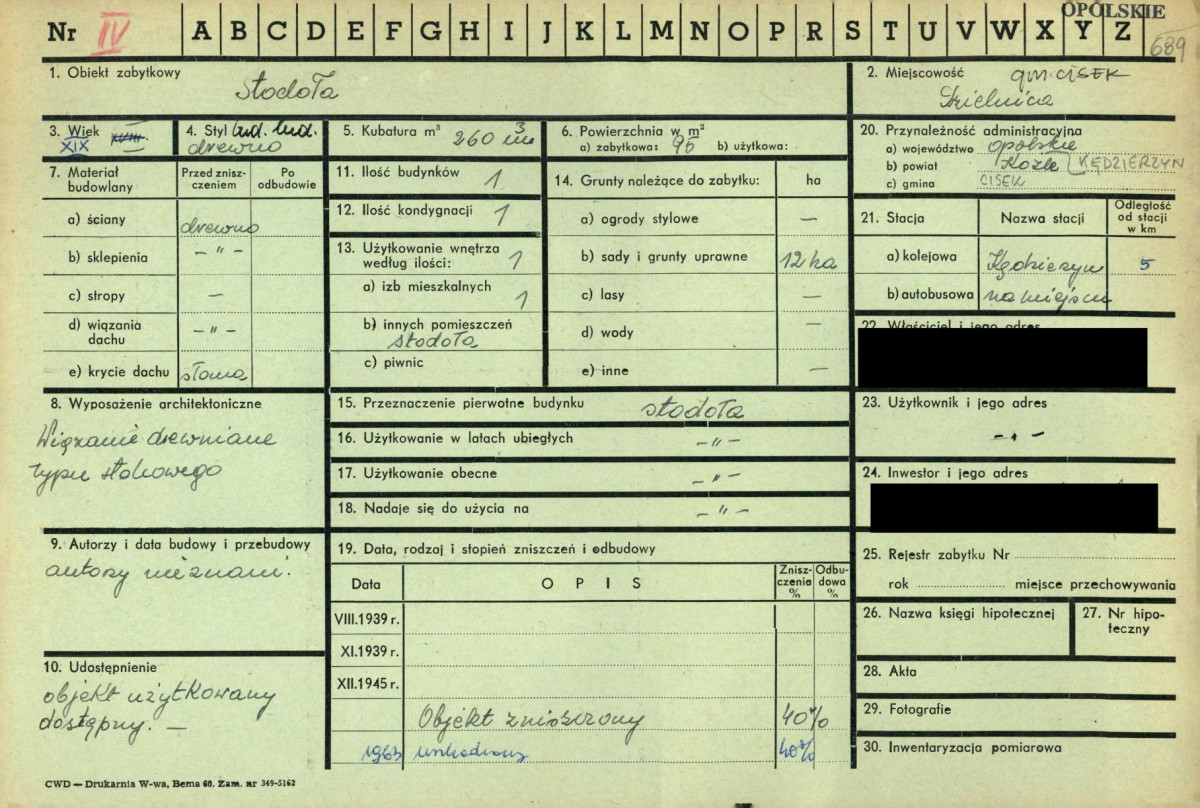 Nr IV A B C D E F G H I J K L M N O P R S T U V W X Y Z
OPOLSKIE
689
1. Obiekt zabytkowy
stodoła
2. Miejscowość gm. CISEK
Dzielnica
3. Wiek XVIII
XIX
4. Styl bud. lud.
drewno
5. Kubatura m³ 260 m³
6. Powierzchnia w m²
a) zabytkowa: 95 b) użytkowa:
20. Przynależność administracyjna
a) województwo opolskie
b) powiat Koźle KĘDZIERZYN
c) gmina CISEK
7. Materiał budowlany
Przed zniszczeniem
Po odbudowie
a) ściany drewno
b) sklepienia – " –
c) stropy –
d) wiązania dachu – " –
e) krycie dachu słoma
11. Ilość budynków 1
12. Ilość kondygnacji 1
13. Użytkowanie wnętrza
według ilości: 1
a) izb mieszkalnych 1
b) innych pomieszczeń
stodoła
c) piwnic
14. Grunty należące do zabytku: ha
a) ogrody stylowe –
b) sady i grunty uprawne 12 ha
c) lasy –
d) wody –
e) inne –
21. Stacja Nazwa stacji Odległość od stacji w km
a) kolejowa Kędzierzyn 5
b) autobusowa na miejscu
22. Właściciel i jego adres
8. Wyposażenie architektoniczne
Wiązanie drewniane
typu stolcowego
15. Przeznaczenie pierwotne budynku stodoła
16. Użytkowanie w latach ubiegłych – " –
17. Użytkowanie obecne – " –
18. Nadaje się do użycia na – " –
23. Użytkownik i jego adres
– " –
24. Inwestor i jego adres
9. Autorzy i data budowy i przebudowy
autorzy nieznani.
19. Data, rodzaj i stopień zniszczeń i odbudowy
Data OPIS Zniszczenia % Odbudowa %
VIII.1939 r.
XI.1939 r.
XII.1945 r.
Objekt zniszczony 40%
1963 uszkodzony 40%
25. Rejestr zabytku Nr
rok miejsce przechowywania
26. Nazwa księgi hipotecznej
27. Nr hipoteczny
28. Akta
29. Fotografie
30. Inwentaryzacja pomiarowa
10. Udostępnienie
objekt użytkowany
dostępny. –
CWD — Drukarnia W-wa, Bema 60. Zam. nr 349-5162